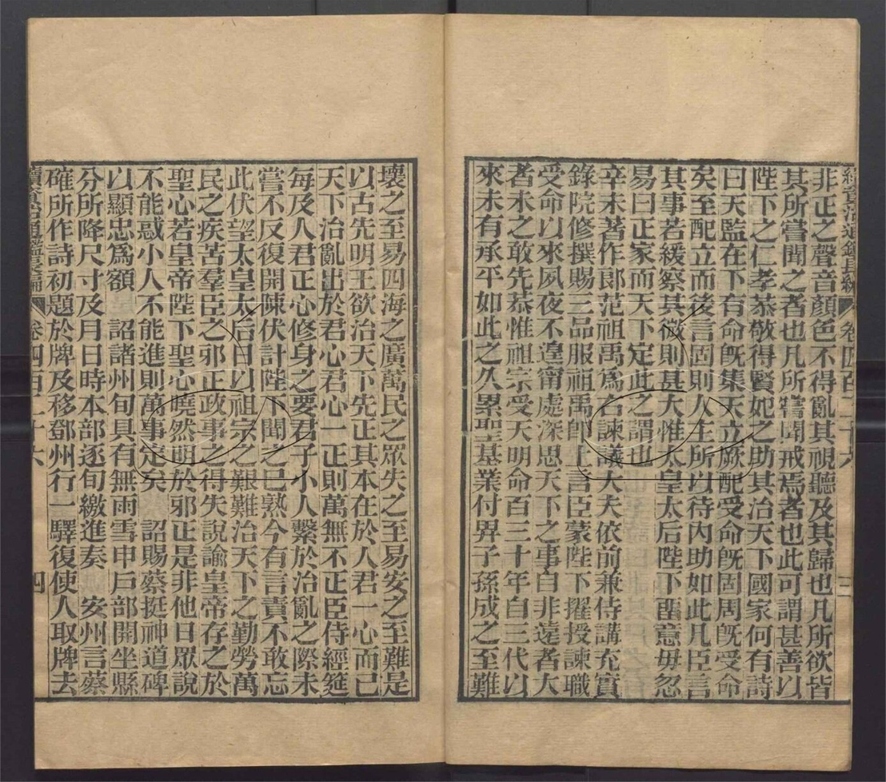 續資治通鑑長編 卷四百二十六 三
非正之聲音顏色不得亂其視聽及其歸也凡所欲皆
其所嘗聞之者也凡所嘗聞戒焉者也此可謂甚善以
陛下之仁孝恭敬得賢妃之助其治天下國家何有詩
曰天監在下有命旣集天立厥配受命旣固周旣受命
矣至配立而後言固則人主所以待內助如此凡臣言
其事若緩察其微則甚大惟太皇太后陛下留意毋忽
易曰正家而天下定此之謂也
辛未著作郎范祖禹爲右諫議大夫依前兼侍講充實
錄院修撰賜三品服祖禹卽上言臣蒙陛下擢授諫職
受命以來夙夜不遑甯處深思天下之事自非遠者大
者未之敢先恭惟祖宗受天明命百三十年自三代以
來未有承平如此之久累聖基業付畀子孫成之至難
壞之至易四海之廣萬民之眾失之至易安之至難是
以古先明王欲治天下先正其本在於人君一心而已
天下治亂出於君心君心一正則萬無不正臣侍經筵
每及人君正心修身之要君子小人繫於治亂之際未
嘗不反復開陳伏計陛下聞之已熟今有言責不敢忘
此伏望太皇太后日以祖宗之艱難治天下之勤勞萬
民之疾苦羣臣之邪正政事之得失說諭皇帝存之於
聖心若皇帝陛下聖心曉然明於邪正是非他日眾說
不能惑小人不能進則萬事定矣 詔賜蔡挺神道碑
以顯忠爲額 詔諸州旬具有無雨雪申戶部開坐縣
分所降尺寸及月日時本部逐旬繳進奏 安州言蔡
確所作詩初題於牌及移鄧州行一驛復使人取牌去
續資治通鑑長編 卷四百二十六 四